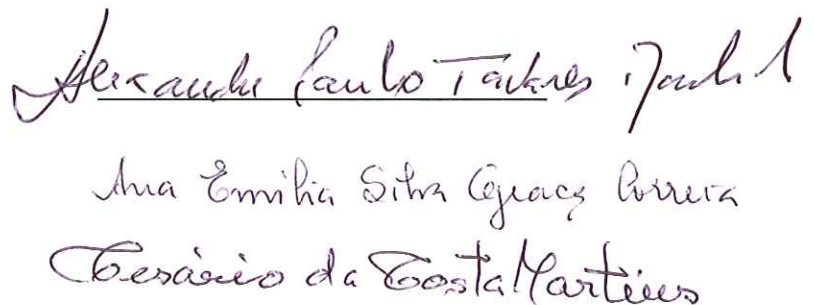 Alexandre Paulo Tavares
Ana Emilia Silva Graça Correia
Cesário da Costa Martins